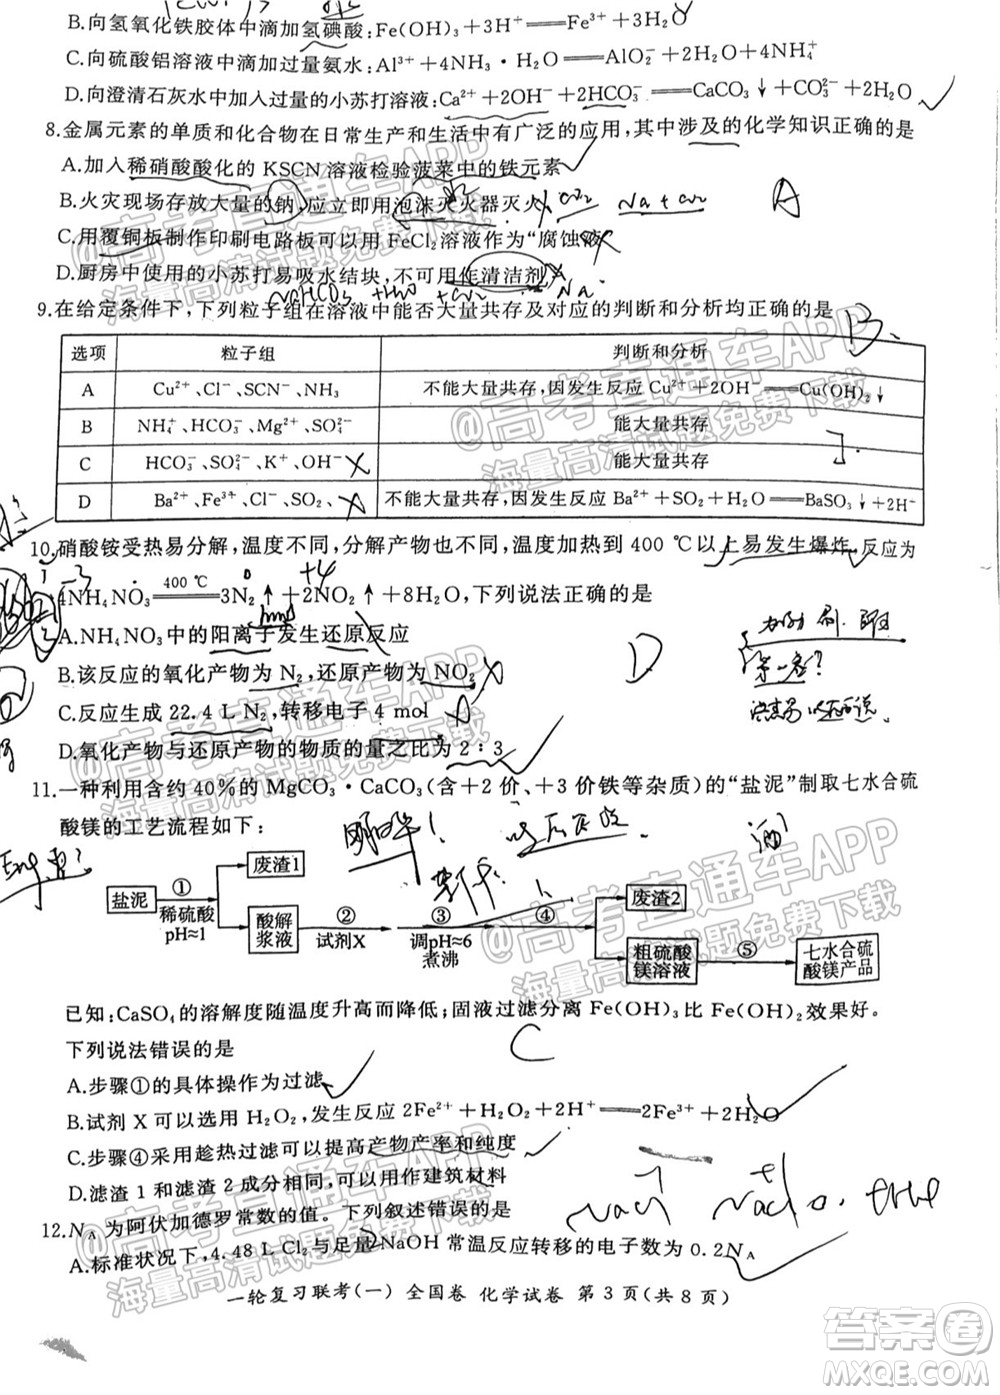 B.向氢氧化铁胶体中滴加氢碘酸:Fe(OH)₃+3H⁺══Fe³⁺+3H₂O
C.向硫酸铝溶液中滴加过量氨水:Al³⁺+4NH₃·H₂O══AlO₂⁻+2H₂O+4NH₄⁺
D.向澄清石灰水中加入过量的小苏打溶液:Ca²⁺+2OH⁻+2HCO₃⁻══CaCO₃↓+CO₃²⁻+2H₂O
8.金属元素的单质和化合物在日常生产和生活中有广泛的应用,其中涉及的化学知识正确的是
A.加入稀硝酸酸化的 KSCN 溶液检验菠菜中的铁元素
B.火灾现场存放大量的钠,应立即用泡沫灭火器灭火
Na+CO₂
A
C.用覆铜板制作印刷电路板可以用 FeCl₂ 溶液作为“腐蚀液”
D.厨房中使用的小苏打易吸水结块,不可用作清洁剂
9.在给定条件下,下列粒子组在溶液中能否大量共存及对应的判断和分析均正确的是
B
选项 粒子组 判断和分析
A Cu²⁺、Cl⁻、SCN⁻、NH₃ 不能大量共存,因发生反应 Cu²⁺+2OH⁻══Cu(OH)₂↓
B NH₄⁺、HCO₃⁻、Mg²⁺、SO₄²⁻ 能大量共存
C HCO₃⁻、SO₄²⁻、K⁺、OH⁻ 能大量共存
D Ba²⁺、Fe³⁺、Cl⁻、SO₂ 不能大量共存,因发生反应 Ba²⁺+SO₂+H₂O══BaSO₃↓+2H⁺
10.硝酸铵受热易分解,温度不同,分解产物也不同,温度加热到 400 ℃以上易发生爆炸,反应为
-3 0 +4
4NH₄NO₃ 400 ℃ ══3N₂↑+2NO₂↑+8H₂O,下列说法正确的是
A.NH₄NO₃中的阳离子发生还原反应
B.该反应的氧化产物为 N₂,还原产物为 NO₂
D
C.反应生成 22.4 L N₂,转移电子 4 mol
D.氧化产物与还原产物的物质的量之比为 2∶3
11.一种利用含约 40%的 MgCO₃·CaCO₃(含+2 价、+3 价铁等杂质)的“盐泥”制取七水合硫
酸镁的工艺流程如下:
盐泥 ① 稀硫酸 pH≈1 废渣1
酸解浆液 ② 试剂X ③ 调pH≈6 煮沸 ④ 废渣2
粗硫酸镁溶液 ⑤ 七水合硫酸镁产品
已知:CaSO₄的溶解度随温度升高而降低;固液过滤分离 Fe(OH)₃比 Fe(OH)₂效果好。
下列说法错误的是
C
A.步骤①的具体操作为过滤
B.试剂 X 可以选用 H₂O₂,发生反应 2Fe²⁺+H₂O₂+2H⁺══2Fe³⁺+2H₂O
C.步骤④采用趁热过滤可以提高产物产率和纯度
D.滤渣 1 和滤渣 2 成分相同,可以用作建筑材料
-1 +1
NaCl NaClO
12.Nᴀ 为阿伏加德罗常数的值。下列叙述错误的是
A.标准状况下,4.48 L Cl₂与足量 NaOH 常温反应转移的电子数为 0.2Nᴀ
一轮复习联考(一) 全国卷 化学试卷 第 3 页(共 8 页)
@高考直通车APP
海量高清试题免费下载
答案圈
MXQE.COM